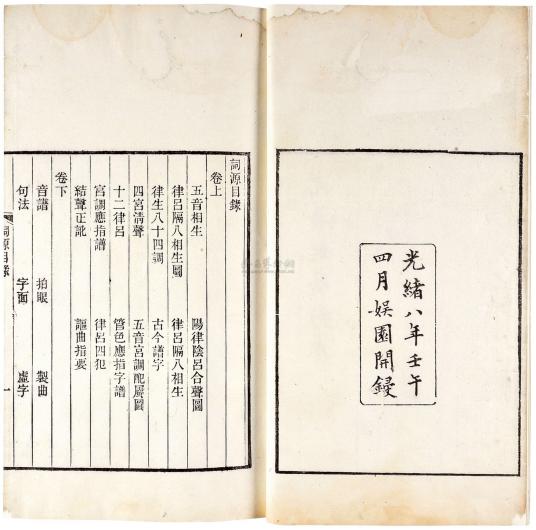 光緒八年壬午
四月娱園開鋟
詞源目錄
卷上
五音相生 陽律陰呂合聲圖
律呂隔八相生圖 律呂隔八相生
律生八十四調 古今譜字
四宮清聲 五音宮調配屬圖
十二律呂 管色應指字譜
宮調應指譜 律呂四犯
結聲正訛 謳曲指要
卷下
音譜 拍眼 製曲
句法 字面 虛字
詞源目錄 一